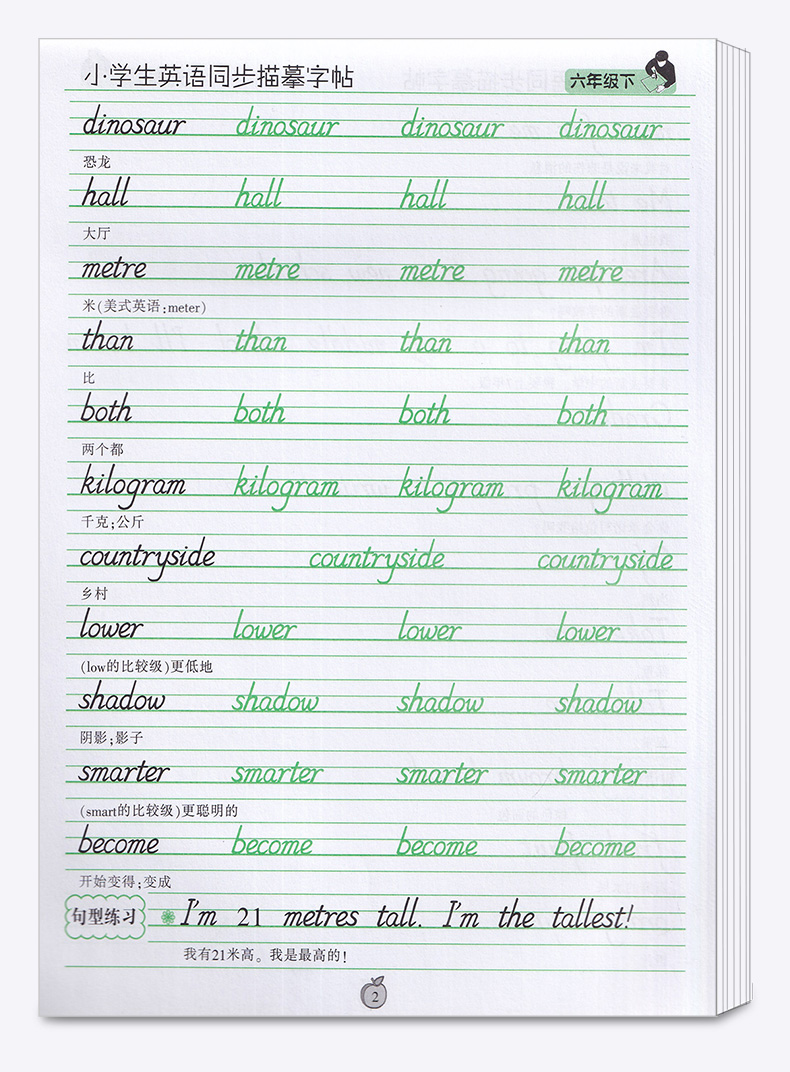 小学生英语同步描摹字帖 六年级下
dinosaur dinosaur dinosaur dinosaur
恐龙
hall hall hall hall
大厅
metre metre metre metre
米(美式英语:meter)
than than than than
比
both both both both
两个都
kilogram kilogram kilogram kilogram
千克;公斤
countryside countryside countryside
乡村
lower lower lower lower
(low的比较级)更低地
shadow shadow shadow shadow
阴影;影子
smarter smarter smarter smarter
(smart的比较级)更聪明的
become become become become
开始变得;变成
句型练习 I'm 21 metres tall. I'm the tallest!
我有21米高。我是最高的!
2